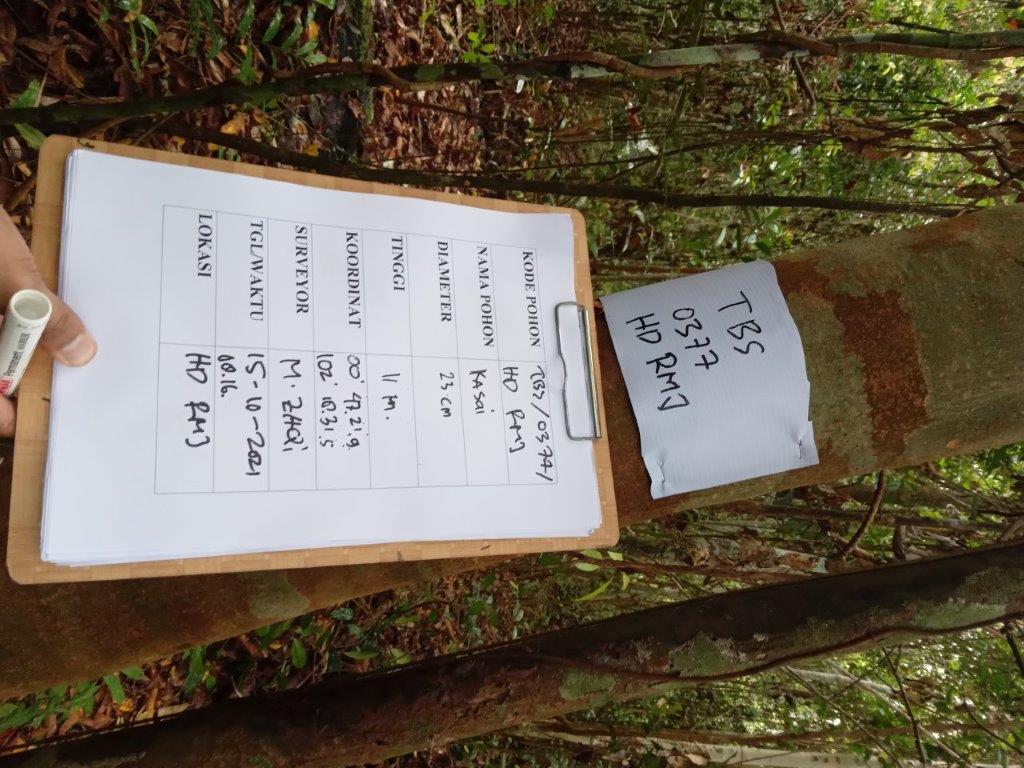 TBS
0377
HD RMJ
KODE POHON TBS/0377/
HD RMJ
NAMA POHON KASai
DIAMETER 23 cm
TINGGI 11 m.
KOORDINAT 00° 47.21.9
102° 18.31.5
SURVEYOR M. ZAQi
TGL/WAKTU 15-10-2021
08.16.
LOKASI HD RMJ
Permanent